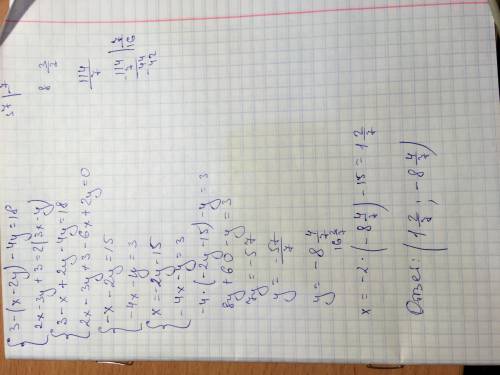 { 3-(x-2y)-4y=18
2x-3y+3=2(3x-y)
{ 3-x+2y-4y=18
2x-3y+3-6x+2y=0
{ -x-2y=15
-4x-y=3
{ x=-2y-15
-4x-y=3
-4·(-2y-15)-y=3
8y+60-y=3
7y=-57
y=-57/7
y=-8 1/7
16 2/7
x=-2·(-8 1/7)-15=1 2/7
Ответ: (1 2/7; -8 1/7)
57 | 7
114/7
114 | 7
16
7
44
-42